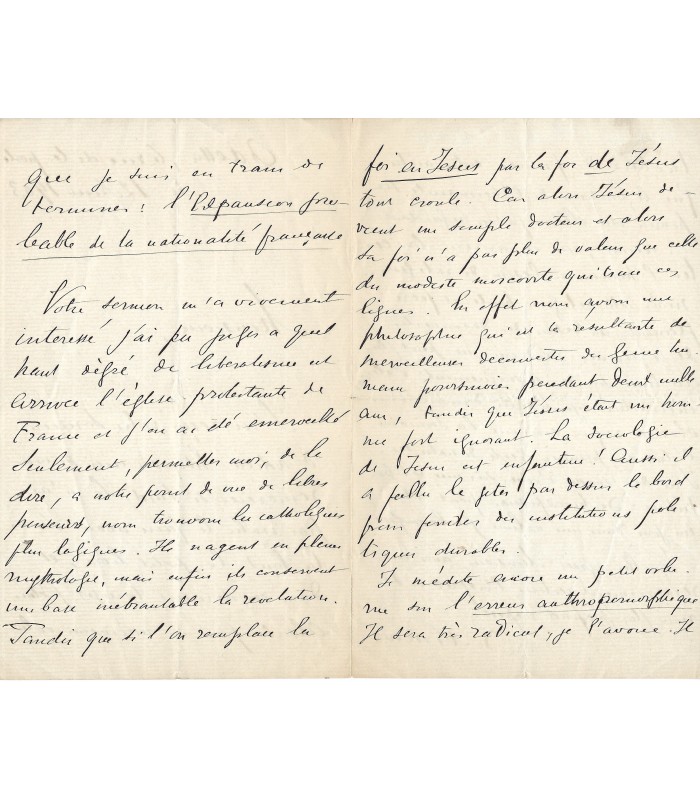 que je suis en train de
terminer : l'Expansion pro-
bable de la nationalité française
Votre sermon m'a vivement
interessé j'ai pu juger a quel
haut dégré de liberalisme est
arrivée l'église protestante de
France et j'en ai été emerveillé
Seulement, permettez moi, de le
dire, a notre point de vue de libres
penseurs, nous trouvons les catholiques
plus logiques. Ils nagent en pleine
mythologie, mais enfin ils conservent
une base inébranlable la revelation.
Tandis que si l'on remplace la
foi en Jesus par la foi de Jésus
tout croule. Car alors Jésus de-
vient un simple docteur et alors
sa foi n'a pas plus de valeur que celle
du modeste moscovite qui trace ces
lignes. En effet nous avons une
philosophie qui est la résultante de
merveilleuses decouvertes du genie hu-
main poursuivies pendant deux mille
ans, tandis que Jésus était un hom-
me fort ignorant. La sociologie
de Jesus est enfantine! Aussi il
a fallu la jeter par dessus le bord
pour fonder des institutions poli-
tiques durables.
Je médite encore un petit volu-
me sur l'erreur anthropomorphique
Il sera très radical, je l'avoue. Il